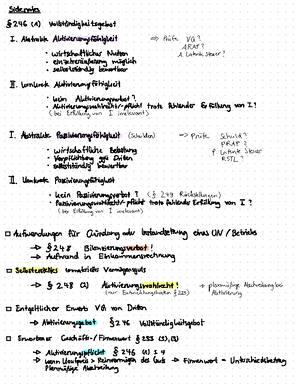 § 246 (1) Vollständigkeitsgebot
I. Abstrakte Aktivierungsfähigkeit => Prüfe VG?
ARAP?
A. Latente Steuer?
· wirtschaftlicher Nutzen
· einzelveräußerung möglich
· selbstständig bewertbar
II. konkrete Aktivierungsfähigkeit
· kein Aktivierungsverbot?
· Aktivierungswahlrecht/-pflicht trotz fehlender Erfüllung von I?
(bei Erfüllung von I irrelevant)
I. Abstrakte Passivierungsfähigkeit (Schulden) => Prüfe Schuld?
PRAP?
P. Latente Steuer
RSTL?
· wirtschaftliche Belastung
· Verpflichtung ggü Dritten
· selbstständig bewertbar
II. Konkrete Passivierungsfähigkeit
· kein Passivierungsverbot? (§ 249 Rückstellungen)
· Passivierungswahlrecht/-pflicht trotz fehlender Erfüllung von I?
(bei Erfüllung von I irrelevant)
□ Aufwendungen für Gründung oder eines UN / Betriebs
-> § 248 Bilanzierungsverbot!
-> Aufwand in
□ Selbsterstelltes immaterielles Vermögensgut
-> § 248 (2) Aktivierungswahlrecht! -> planmäßige Abschreibung bei Aktivierung
(nur Entwicklungskosten § 255)
□ Entgeltlicher Erwerb VG von Dritten
-> Aktivierungsgebot § 246 Vollständigkeitsgebot
□ Erworbener Geschäfts-/Firmenwert
-> Aktivierungspflicht § 246 (1) S. 4
-> wenn Kaufpreis > Reinvermögen des -> Firmenwert = Unterschiedsbetrag
Planmäßige Abschreibung